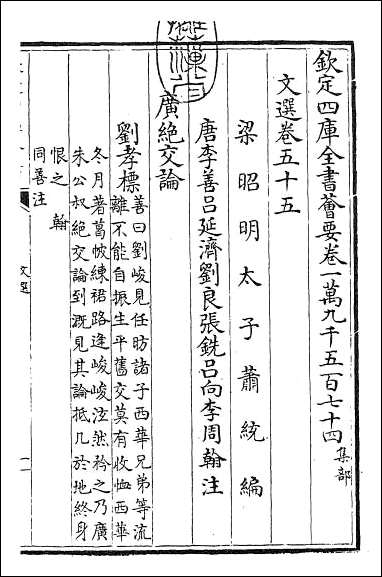 欽定四庫全書薈要卷一萬九千五百七十四 集部
文選卷五十五
梁昭明太子蕭統編
唐李善呂延濟劉良張銑呂向李周翰注
廣絶交論
劉孝標 善曰劉峻見任昉諸子西華兄弟等流
離不能自振生平舊交莫有收恤西華
冬月著葛帔練裙路逢峻峻泫然矜之乃廣
朱公叔絶交論到溉見其論抵几於地終身
恨之 翰
同善注
文選
一